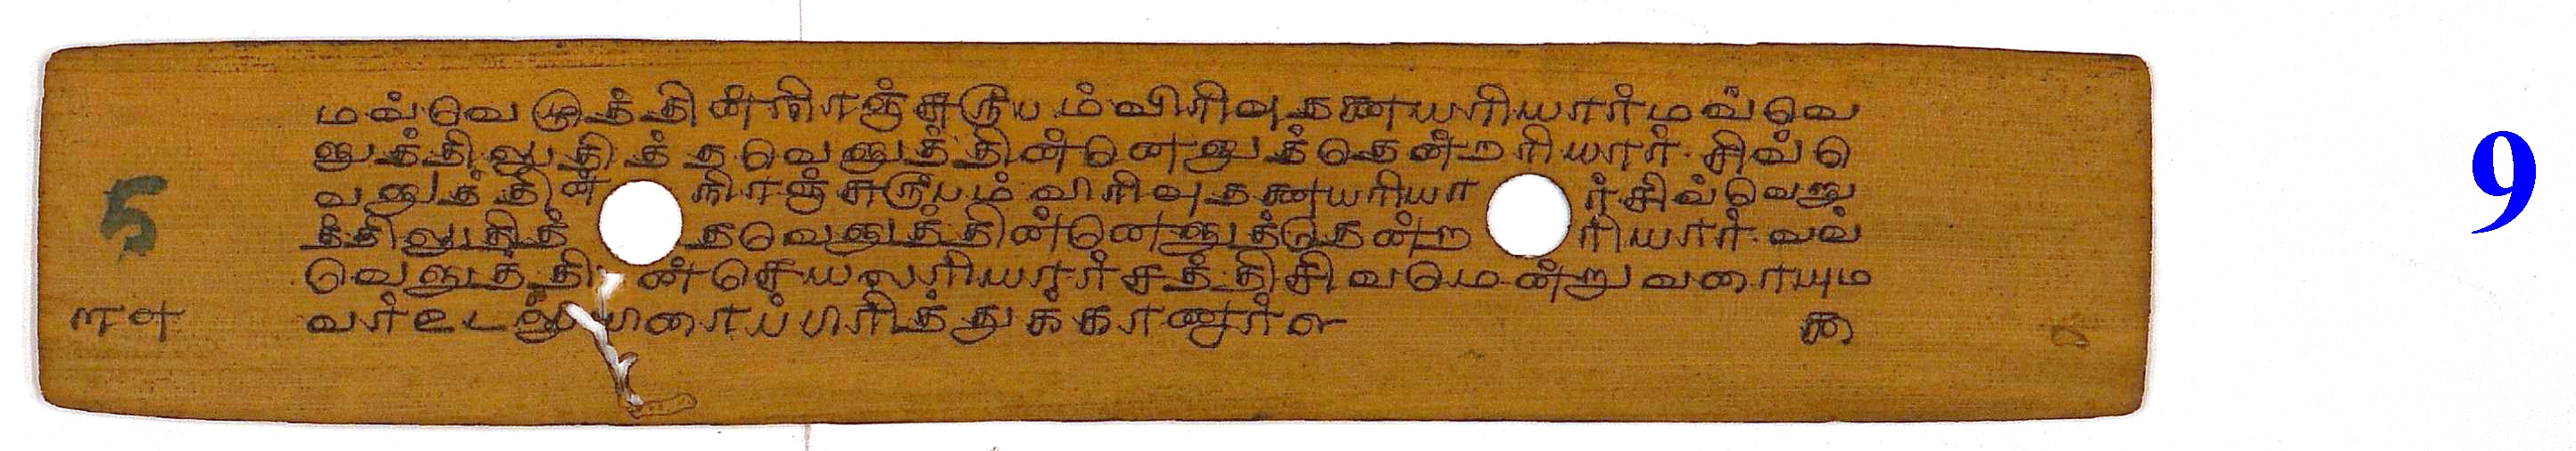 மவ்வெழுத்தின்னிரஞ்சரூபம்விரிவுதனையரியார்மவ்வெ
ழுத்திலுதித்தவெளுத்தின்னெழுத்தென்றரியார்சிவ்வெ
வளுத்தின் நிரஞ்சரூபம்விரிவுதனையரியா ர்சிவ்வெழு
த்திலுதித் தவெளுத்தின்னெளுத்தென்ற ரியார்வவ்
வெளுத்தின்செயலரியார்சத்திசிவமென்றுவரையும
வர்உடலு ரைப்பரித்துக்காணார்
5
9